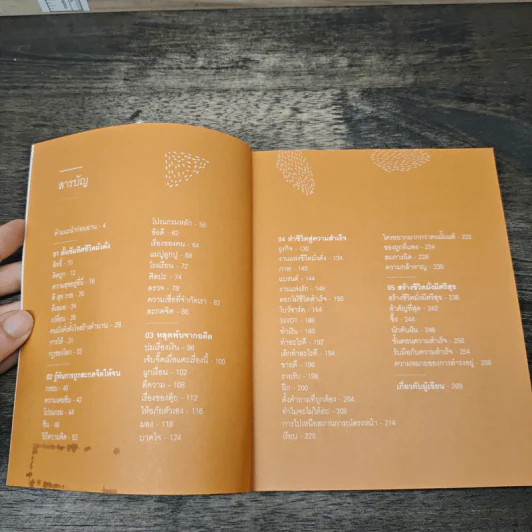 สารบัญ
คำแนะนำก่อนอ่าน - 4
01 ตั้งเข็มทิศชีวิตมั่งคั่ง
สิทธิ์ - 10
ความสุขอยู่ที่นี่ - 16
ดี สุข รวย - 20
เปลี่ยน - 26
การให้ - 31
กฎของโลก - 32
02 รู้ทันการถูกสะกดจิตให้จน
ความเคยชิน - 42
โปรแกรม - 44
วิถีความคิด - 52
โปรแกรมหลัก - 56
ข้อดี - 62
เรื่องของคน - 64
แม่ปูลูกปู - 68
โรงเรียน - 72
ศิลปะ - 74
ตรวจ - 78
ความเชื่อที่จำกัดเรา - 82
สะกดจิต - 86
03 หลุดพ้นจากอดีต
ปมเรื่องเงิน - 96
เจ็บจี๊ดเมื่อแตะเรื่องนี้ - 100
ผูกเงื่อน - 102
ตีความ - 108
เรื่องของตุ้ย - 112
ให้อภัยตัวเอง - 116
มอง - 118
บาดใจ - 124
04 ทำชีวิตสู่ความสำเร็จ
ธุรกิจ - 130
งานแห่งชีวิตมั่งคั่ง - 134
ภาพ - 140
แบรนด์ - 144
งานแห่งรัก - 146
ดอกไม้ชีวิตสำเร็จ - 150
ทำเงิน - 188
ขายดี - 196
รายรับ - 198
ฝึก - 200
ตั้งคำถามที่ถูกต้อง - 204
ทำไมจะไม่ได้ล่ะ - 208
การไปเหนือสถานการณ์ตรงหน้า - 214
เงียบ - 220
ใครอยากมากกว่าคนนั้นแพ้ - 222
ของถูกที่แพง - 224
สมการเงิน - 228
ความกล้าหาญ - 230
05 สร้างชีวิตมั่งมีศรีสุข
สร้างชีวิตมั่งมีศรีสุข - 236
สำคัญที่สุด - 242
ซึ้ง - 244
นักดับฝัน - 248
ขั้นตอนความสำเร็จ - 250
รับมือกับความสำเร็จ - 254
ความหมายของการดำรงอยู่ - 258
เกี่ยวกับผู้เขียน - 269